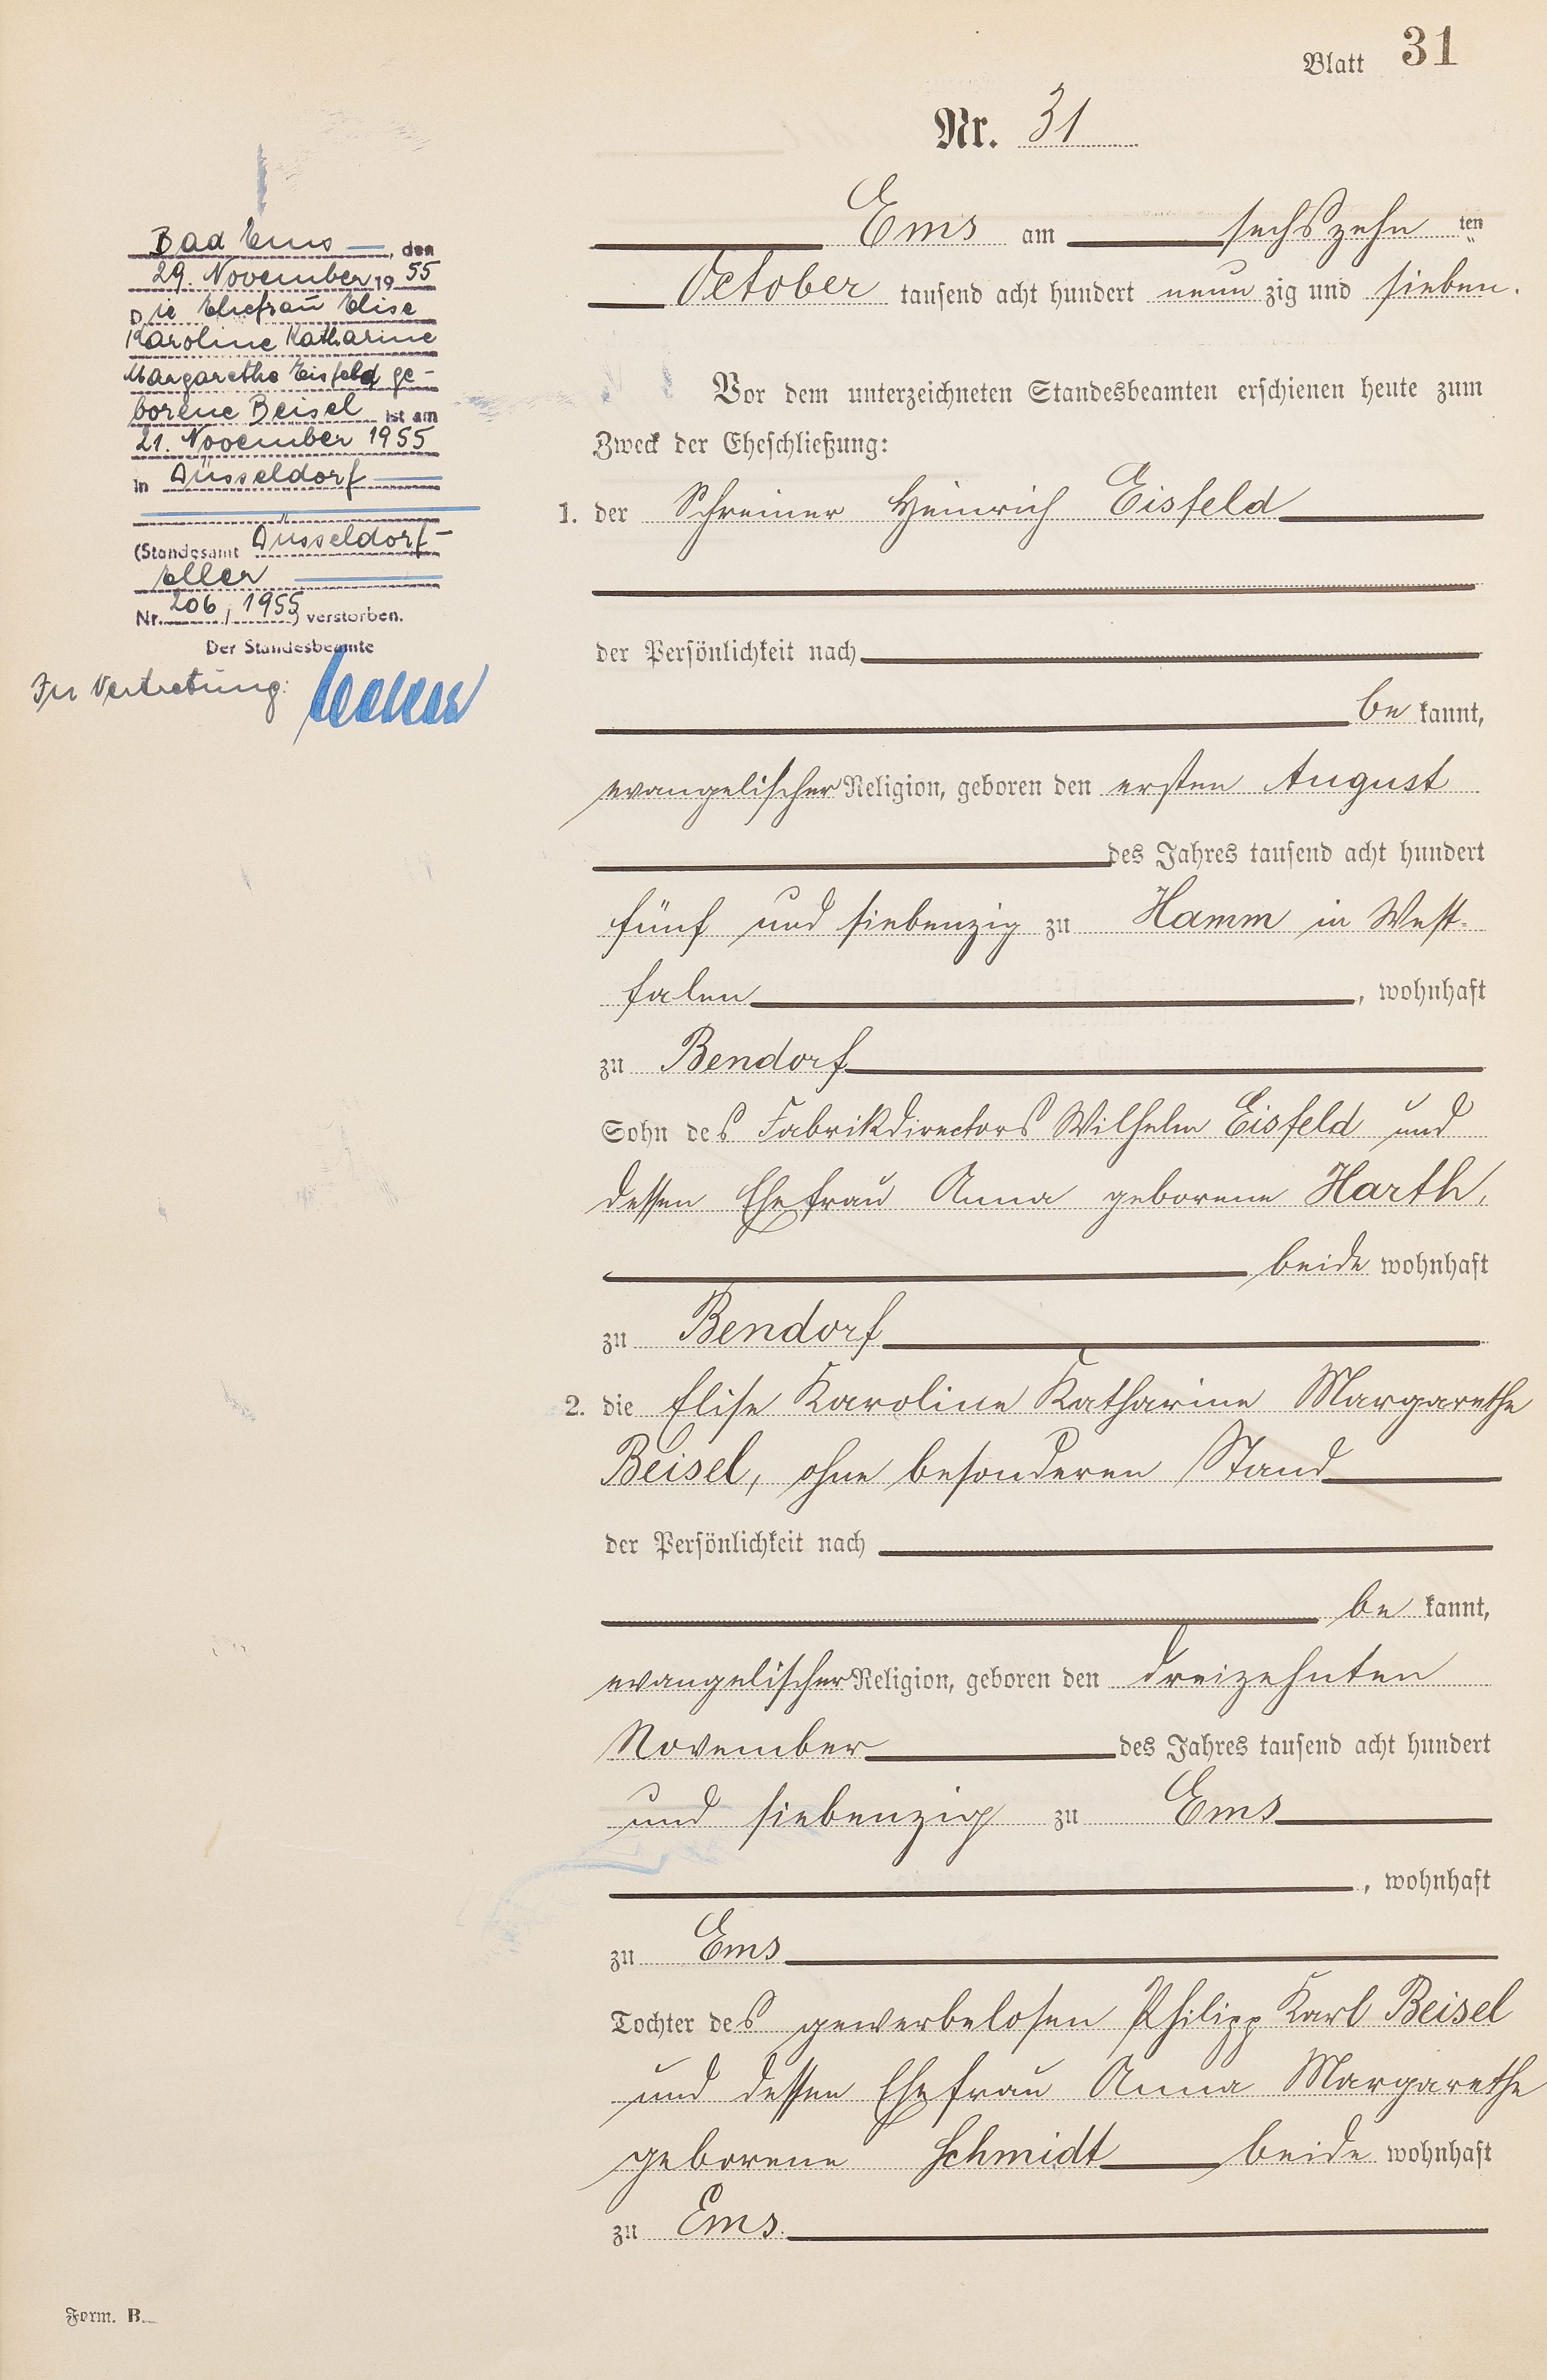 Blatt 31
Nr. 31
Ems am sechszehn ten
October tausend acht hundert neun zig und sieben.
Vor dem unterzeichneten Standesbeamten erschienen heute zum
Zweck der Eheschließung:
1. der Schreiner Heinrich Eisfeld
der Persönlichkeit nach
be kannt,
evangelischer Religion, geboren den ersten August
des Jahres tausend acht hundert
fünf und siebenzig zu Hamm in West-
falen, wohnhaft
zu Bendorf
Sohn des Fabrikdirectors Wilhelm Eisfeld und
dessen Ehefrau Anna geborene Harth,
beide wohnhaft
zu Bendorf
2. die Elise Karoline Katharine Margarethe
Beisel, ohne besonderen Stand
der Persönlichkeit nach
be kannt,
evangelischer Religion, geboren den dreizehnten
November des Jahres tausend acht hundert
und siebenzig zu Ems
, wohnhaft
zu Ems
Tochter des gewerbelosen Philipp Karl Beisel
und dessen Ehefrau Anna Margarethe
geborene Schmidt beide wohnhaft
zu Ems.
Bad Ems, den
29. November 1955
Die Ehefrau Elise
Karoline Katharine
Margarethe Eisfeld ge-
borene Beisel ist am
21. November 1955
in Düsseldorf
(Standesamt Düsseldorf-
Eller
Nr. 206/1955) verstorben.
Der Standesbeamte
In Vertretung:
Form. B.